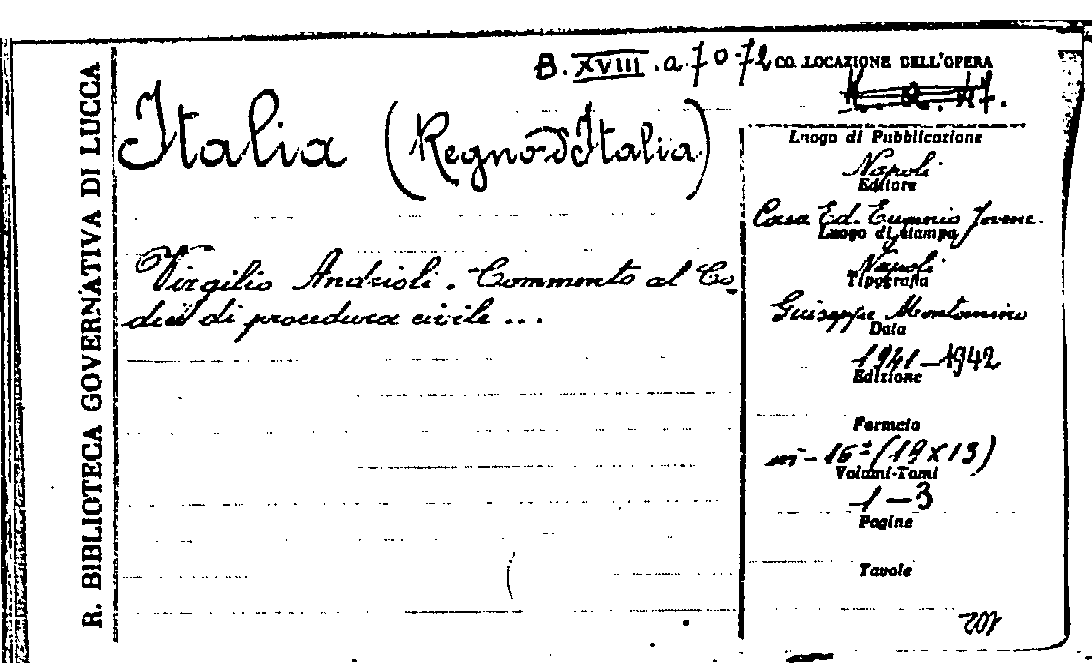 R. BIBLIOTECA GOVERNATIVA DI LUCCA
B. XVIII. a. 70-72
CO LOCAZIONE DELL'OPERA
Italia (Regno d'Italia)
Virgilio Andrioli. Commento al Co-
dice di procedura civile ...
Luogo di Pubblicazione
Napoli
Editore
Casa Ed. Eugenio Jovene.
Luogo di stampa
Napoli
Tipografia
Giuseppe Montanino
Data
1941-1942
Edizione
Formato
in-16º (19x13)
Volumi-Tomi
1-3
Pagine
Tavole